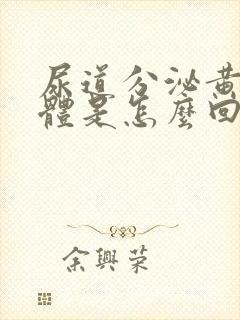 尿道分泌黃
體是怎麼回
余興榮